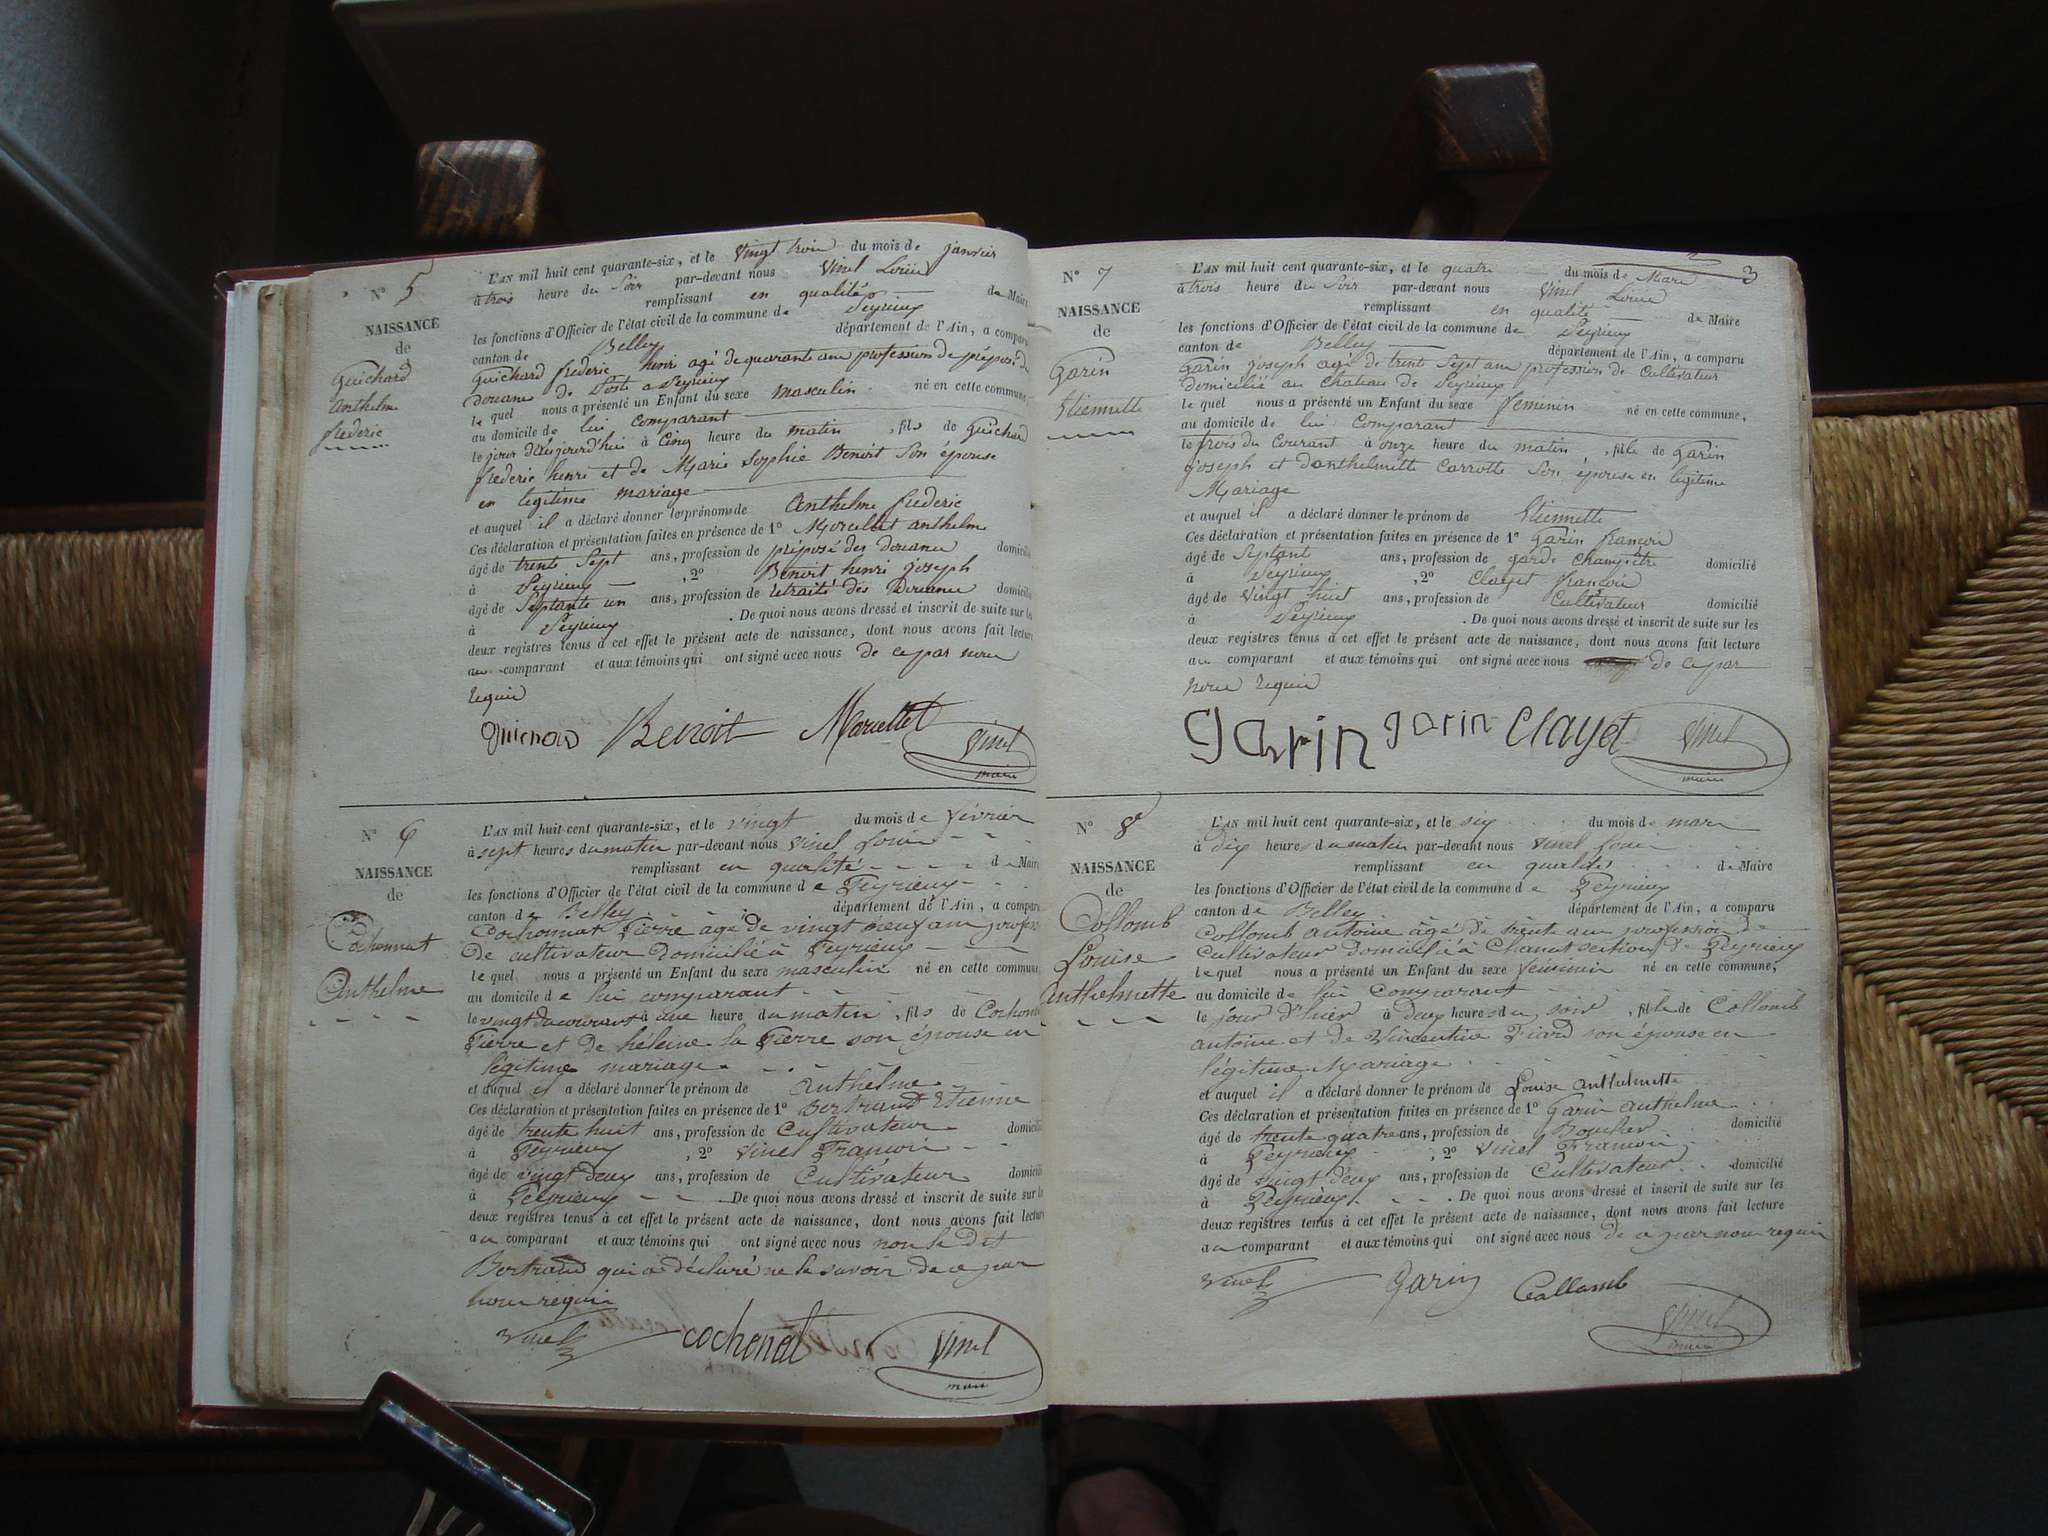 N° 5
NAISSANCE
de
Guichard
Anthelme
frederic
L'AN mil huit cent quarante-six, et le vingt trois du mois de janvier
à trois heure du Soir par-devant nous Vinel Louis
remplissant en qualité de Maire
les fonctions d'Officier de l'état civil de la commune de Peyrieux
canton de Belley département de l'Ain, a comparu
Guichard frederic henri agé de quarante ans profession de préposé de
douane de Poste a Peyrieux
le quel nous a présenté un Enfant du sexe masculin né en cette commune,
au domicile de lui comparant
le jour d'aujourd'hui à Cinq heure du matin, fils de Guichard
frederic henri et de Marie Sophie Benoit Son épouse
en legitime mariage
et auquel il a déclaré donner les prénoms de Anthelme frederic
Ces déclaration et présentation faites en présence de 1° anthelme
âgé de trente Sept ans, profession de préposé des douanes domicilié
à Peyrieux, 2° Benoit henri joseph
âgé de Septante un ans, profession de retraité des Douanes domicilié
à Peyrieux. De quoi nous avons dressé et inscrit de suite sur les
deux registres tenus à cet effet le présent acte de naissance, dont nous avons fait lecture
au comparant et aux témoins qui ont signé avec nous de ce par nous
requis
Benoit Vinel
maire
N° 6
NAISSANCE
de
Cochonnat
Anthelme
L'AN mil huit cent quarante-six, et le vingt du mois de février
à sept heures du matin par-devant nous Vinel Louis
remplissant en qualité de Maire
les fonctions d'Officier de l'état civil de la commune de Peyrieux
canton de Belley département de l'Ain, a comparu
Cochonnat Pierre âgé de vingt neuf ans profession
De cultivateur Domicilié à Peyrieux
le quel nous a présenté un Enfant du sexe masculin né en cette commune,
au domicile de lui comparant
le vingt du courant à une heure du matin, fils de Cochonnat
Pierre et de héleine la Pierre son épouse en
légitime mariage
et auquel il a déclaré donner le prénom de Anthelme
Ces déclaration et présentation faites en présence de 1° Bertrand Etienne
âgé de trente huit ans, profession de Cultivateur domicilié
à Peyrieux, 2° Vinel François
âgé de vingt deux ans, profession de Cultivateur domicilié
à Peyrieux. De quoi nous avons dressé et inscrit de suite sur les
deux registres tenus à cet effet le présent acte de naissance, dont nous avons fait lecture
au comparant et aux témoins qui ont signé avec nous non le dit
Bertrand qui a déclaré ne le savoir de ce par
nous requis
Vinel cochonat Vinel
maire
3
N° 7
NAISSANCE
de
Garin
Etiennette
L'AN mil huit cent quarante-six, et le quatre du mois de Mars
à trois heure du Soir par-devant nous Vinel Louis
remplissant en qualité de Maire
les fonctions d'Officier de l'état civil de la commune de Peyrieux
canton de Belley département de l'Ain, a comparu
Garin joseph agé de trente Sept ans profession de Cultivateur
domicilié au chateau de Peyrieux
le quel nous a présenté un Enfant du sexe feminin né en cette commune,
au domicile de lui Comparant
le trois du Courant à onze heure du matin, fille de Garin
joseph et d'anthelmette Carrotte Son épouse en légitime
Mariage
et auquel il a déclaré donner le prénom de Etiennette
Ces déclaration et présentation faites en présence de 1° Garin françois
âgé de Septante ans, profession de garde Champêtre domicilié
à Peyrieux, 2° Clayet François
âgé de Vingt huit ans, profession de Cultivateur domicilié
à Peyrieux. De quoi nous avons dressé et inscrit de suite sur les
deux registres tenus à cet effet le présent acte de naissance, dont nous avons fait lecture
au comparant et aux témoins qui ont signé avec nous de ce par
nous requis
garin garin Clayet Vinel
maire
N° 8
NAISSANCE
de
Collomb
Louise
anthelmette
L'AN mil huit cent quarante-six, et le six du mois de mars
à dix heures du matin par-devant nous Vinel Louis
remplissant en qualité de Maire
les fonctions d'Officier de l'état civil de la commune de Peyrieux
canton de Belley département de l'Ain, a comparu
Collomb antoine âgé de trente ans profession de
cultivateur Domicilié à Chanut section de Peyrieux
le quel nous a présenté un Enfant du sexe féminin né en cette commune,
au domicile de lui Comparant
le jour d'hier à deux heures du soir, fille de Collomb
antoine et de Vincentine Piard son épouse en
légitime Mariage
et auquel il a déclaré donner le prénom de Louise anthelmette
Ces déclaration et présentation faites en présence de 1° Garin anthelme
âgé de trente quatre ans, profession de Boucher domicilié
à Peyrieux, 2° Vinel François
âgé de vingt deux ans, profession de Cultivateur domicilié
à Peyrieux. De quoi nous avons dressé et inscrit de suite sur les
deux registres tenus à cet effet le présent acte de naissance, dont nous avons fait lecture
au comparant et aux témoins qui ont signé avec nous de ce par nous requis
Vinel Garin Collomb
Vinel
maire